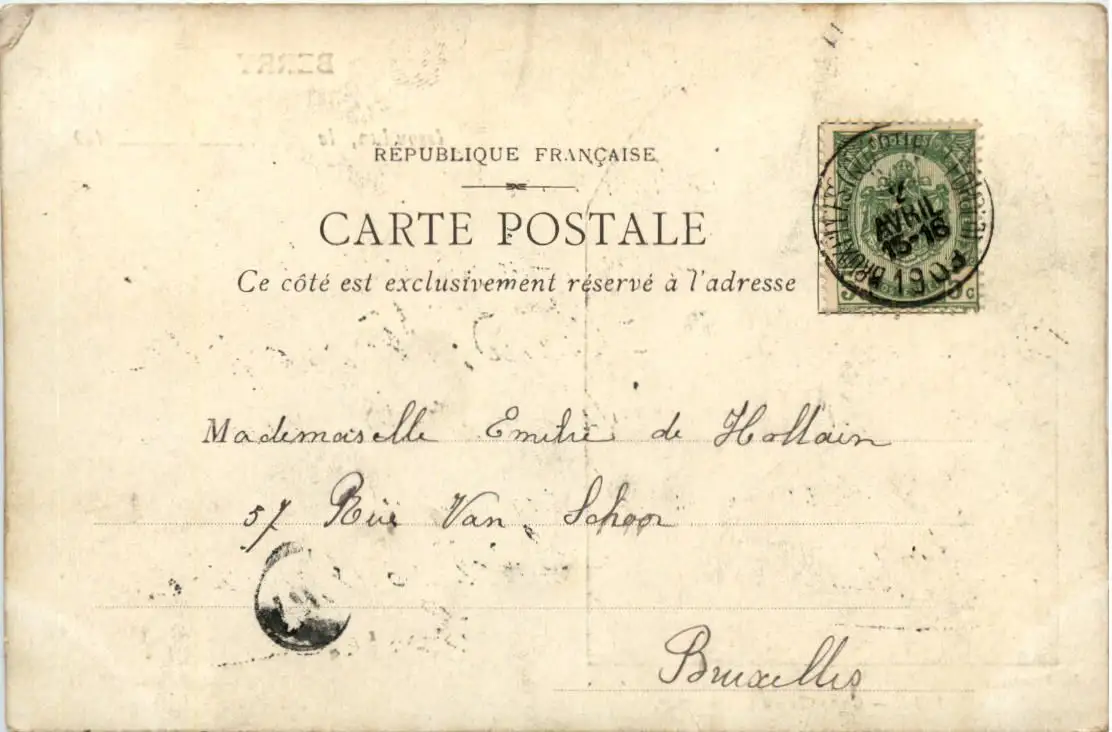 RÉPUBLIQUE FRANÇAISE
CARTE POSTALE
Ce côté est exclusivement réservé à l'adresse
AVRIL
15-16
Mademaselle Emilie de Hollain
57 Rue Van Schoor
Bruxelles